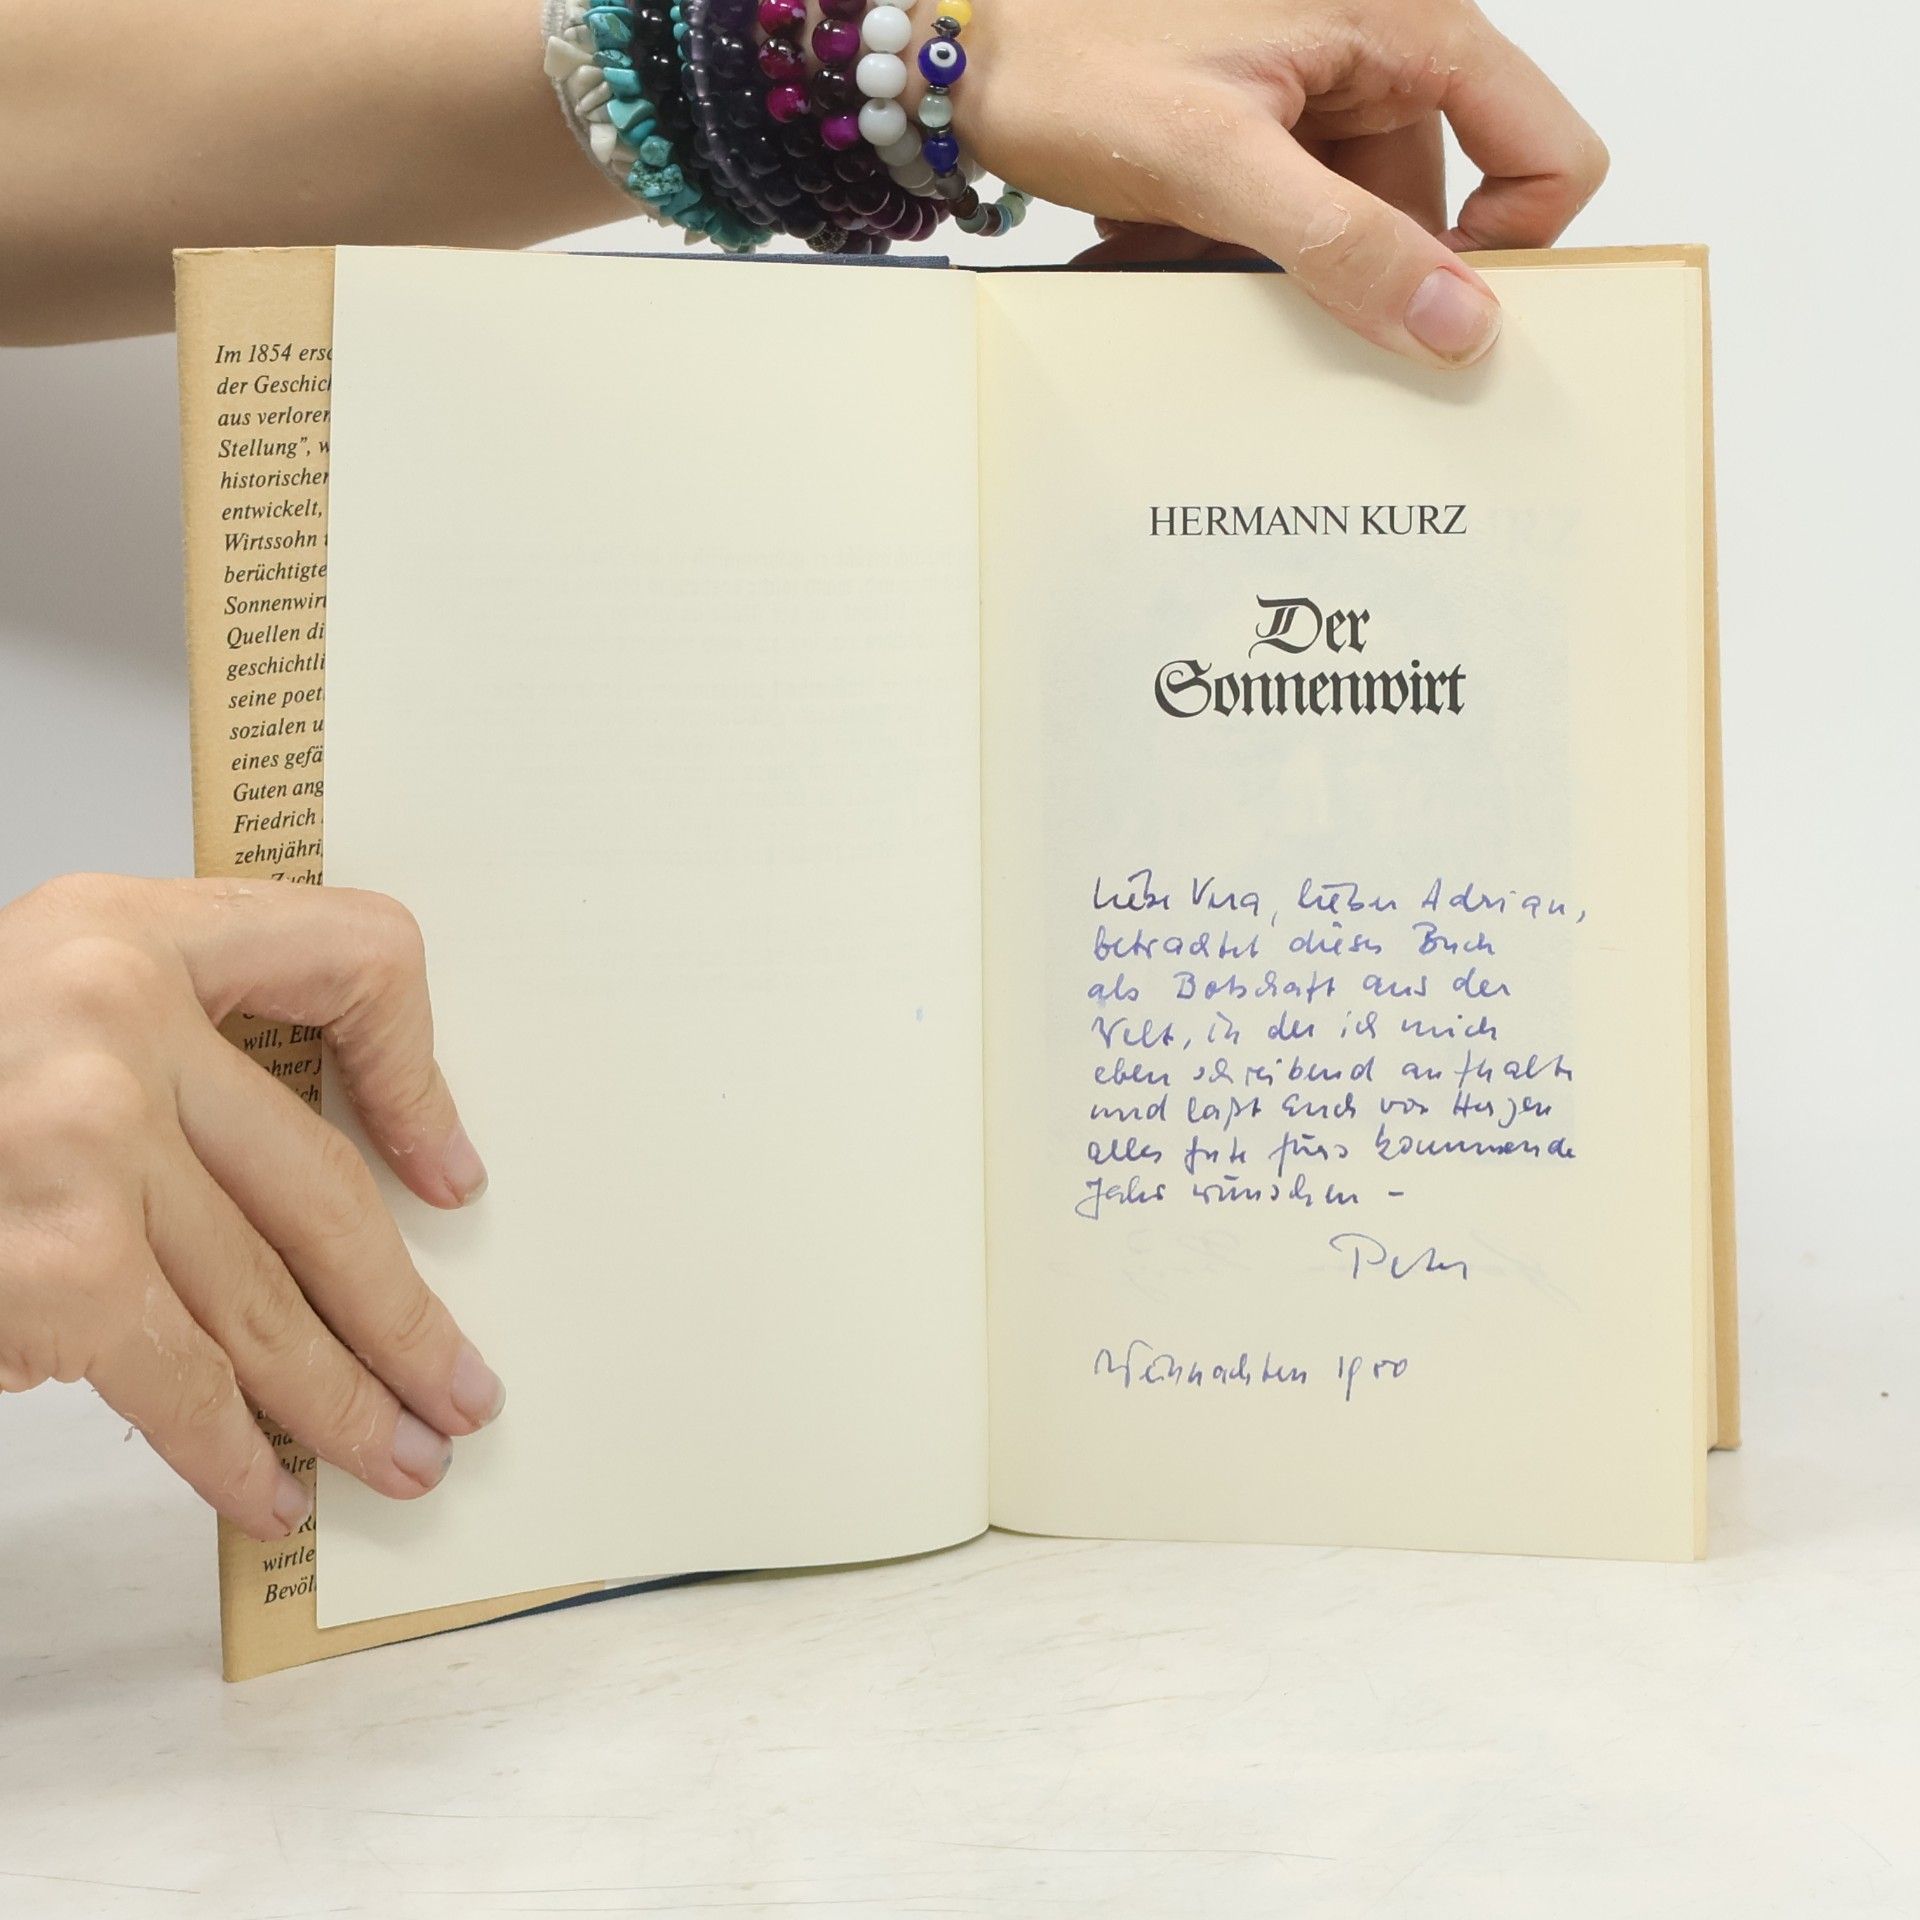 Im 1854 ersc
der Geschich
aus verloren
Stellung”, w
historischer
entwickelt,
Wirtssohn
berüchtigte
Sonnenwirt
Quellen di
geschichtli
seine poet
sozialen u
eines gefä
Guten ang
Friedrich
zehnjähri
Zucht
will, Elte
wirtle
Bevöl
HERMANN KURZ
Der
Sonnenwirt
Liebe Vera, lieber Adrian,
betrachtet dieses Buch
als Botschaft aus der
Welt, in der ich mich
eben schreibend aufhalte
und laßt Euch von Herzen
alles Gute fürs kommende
Jahr wünschen –
Peter
Weihnachten 1980